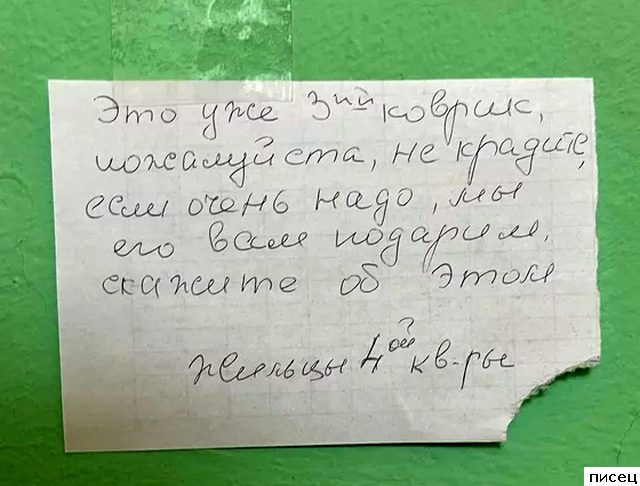 Это уже 3ий коврик,
пожалуйста, не крадите,
если очень надо, мы
его вам подарим,
скажите об этом
жильцы 4ой кв-ры
писец